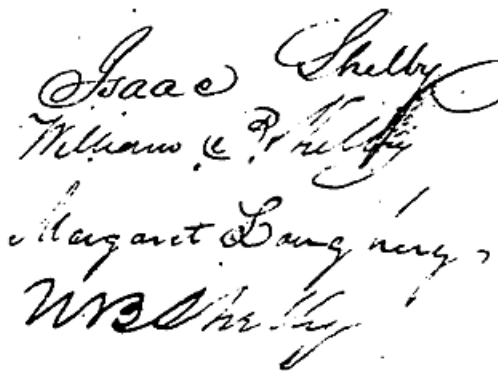 Isaac Shelby
William C. P. Shelby
Margaret
W B Shelby